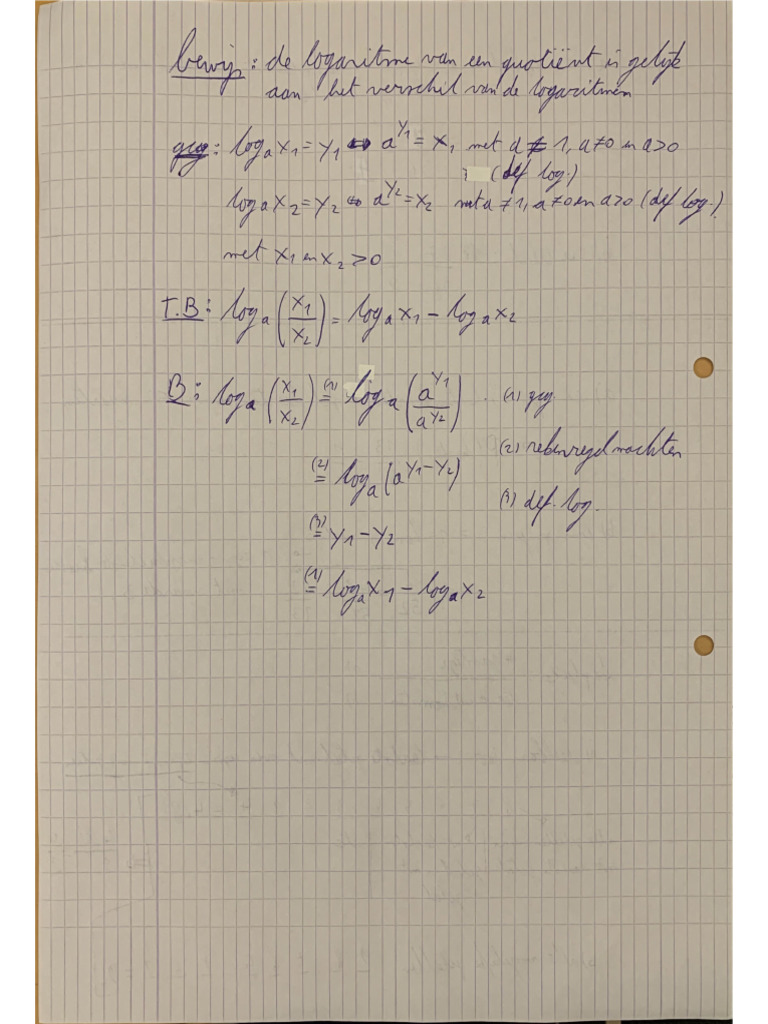 bewijs: de logaritme van een quotiënt is gelijk
aan het verschil van de logaritmen
geg: logₐ x₁ = y₁ ⇔ a^y₁ = x₁ met a ≠ 1, a ≠ 0 en a > 0
(def log.)
logₐ x₂ = y₂ ⇔ a^y₂ = x₂ met a ≠ 1, a ≠ 0 en a > 0 (def log.)
met x₁ en x₂ > 0
T.B: logₐ (x₁/x₂) = logₐ x₁ - logₐ x₂
B: logₐ (x₁/x₂) (1)= logₐ (a^y₁/a^y₂) (1) geg
(2)= logₐ (a^(y₁-y₂)) (2) rekenregel machten
(3)= y₁ - y₂ (3) def. log.
(1)= logₐ x₁ - logₐ x₂